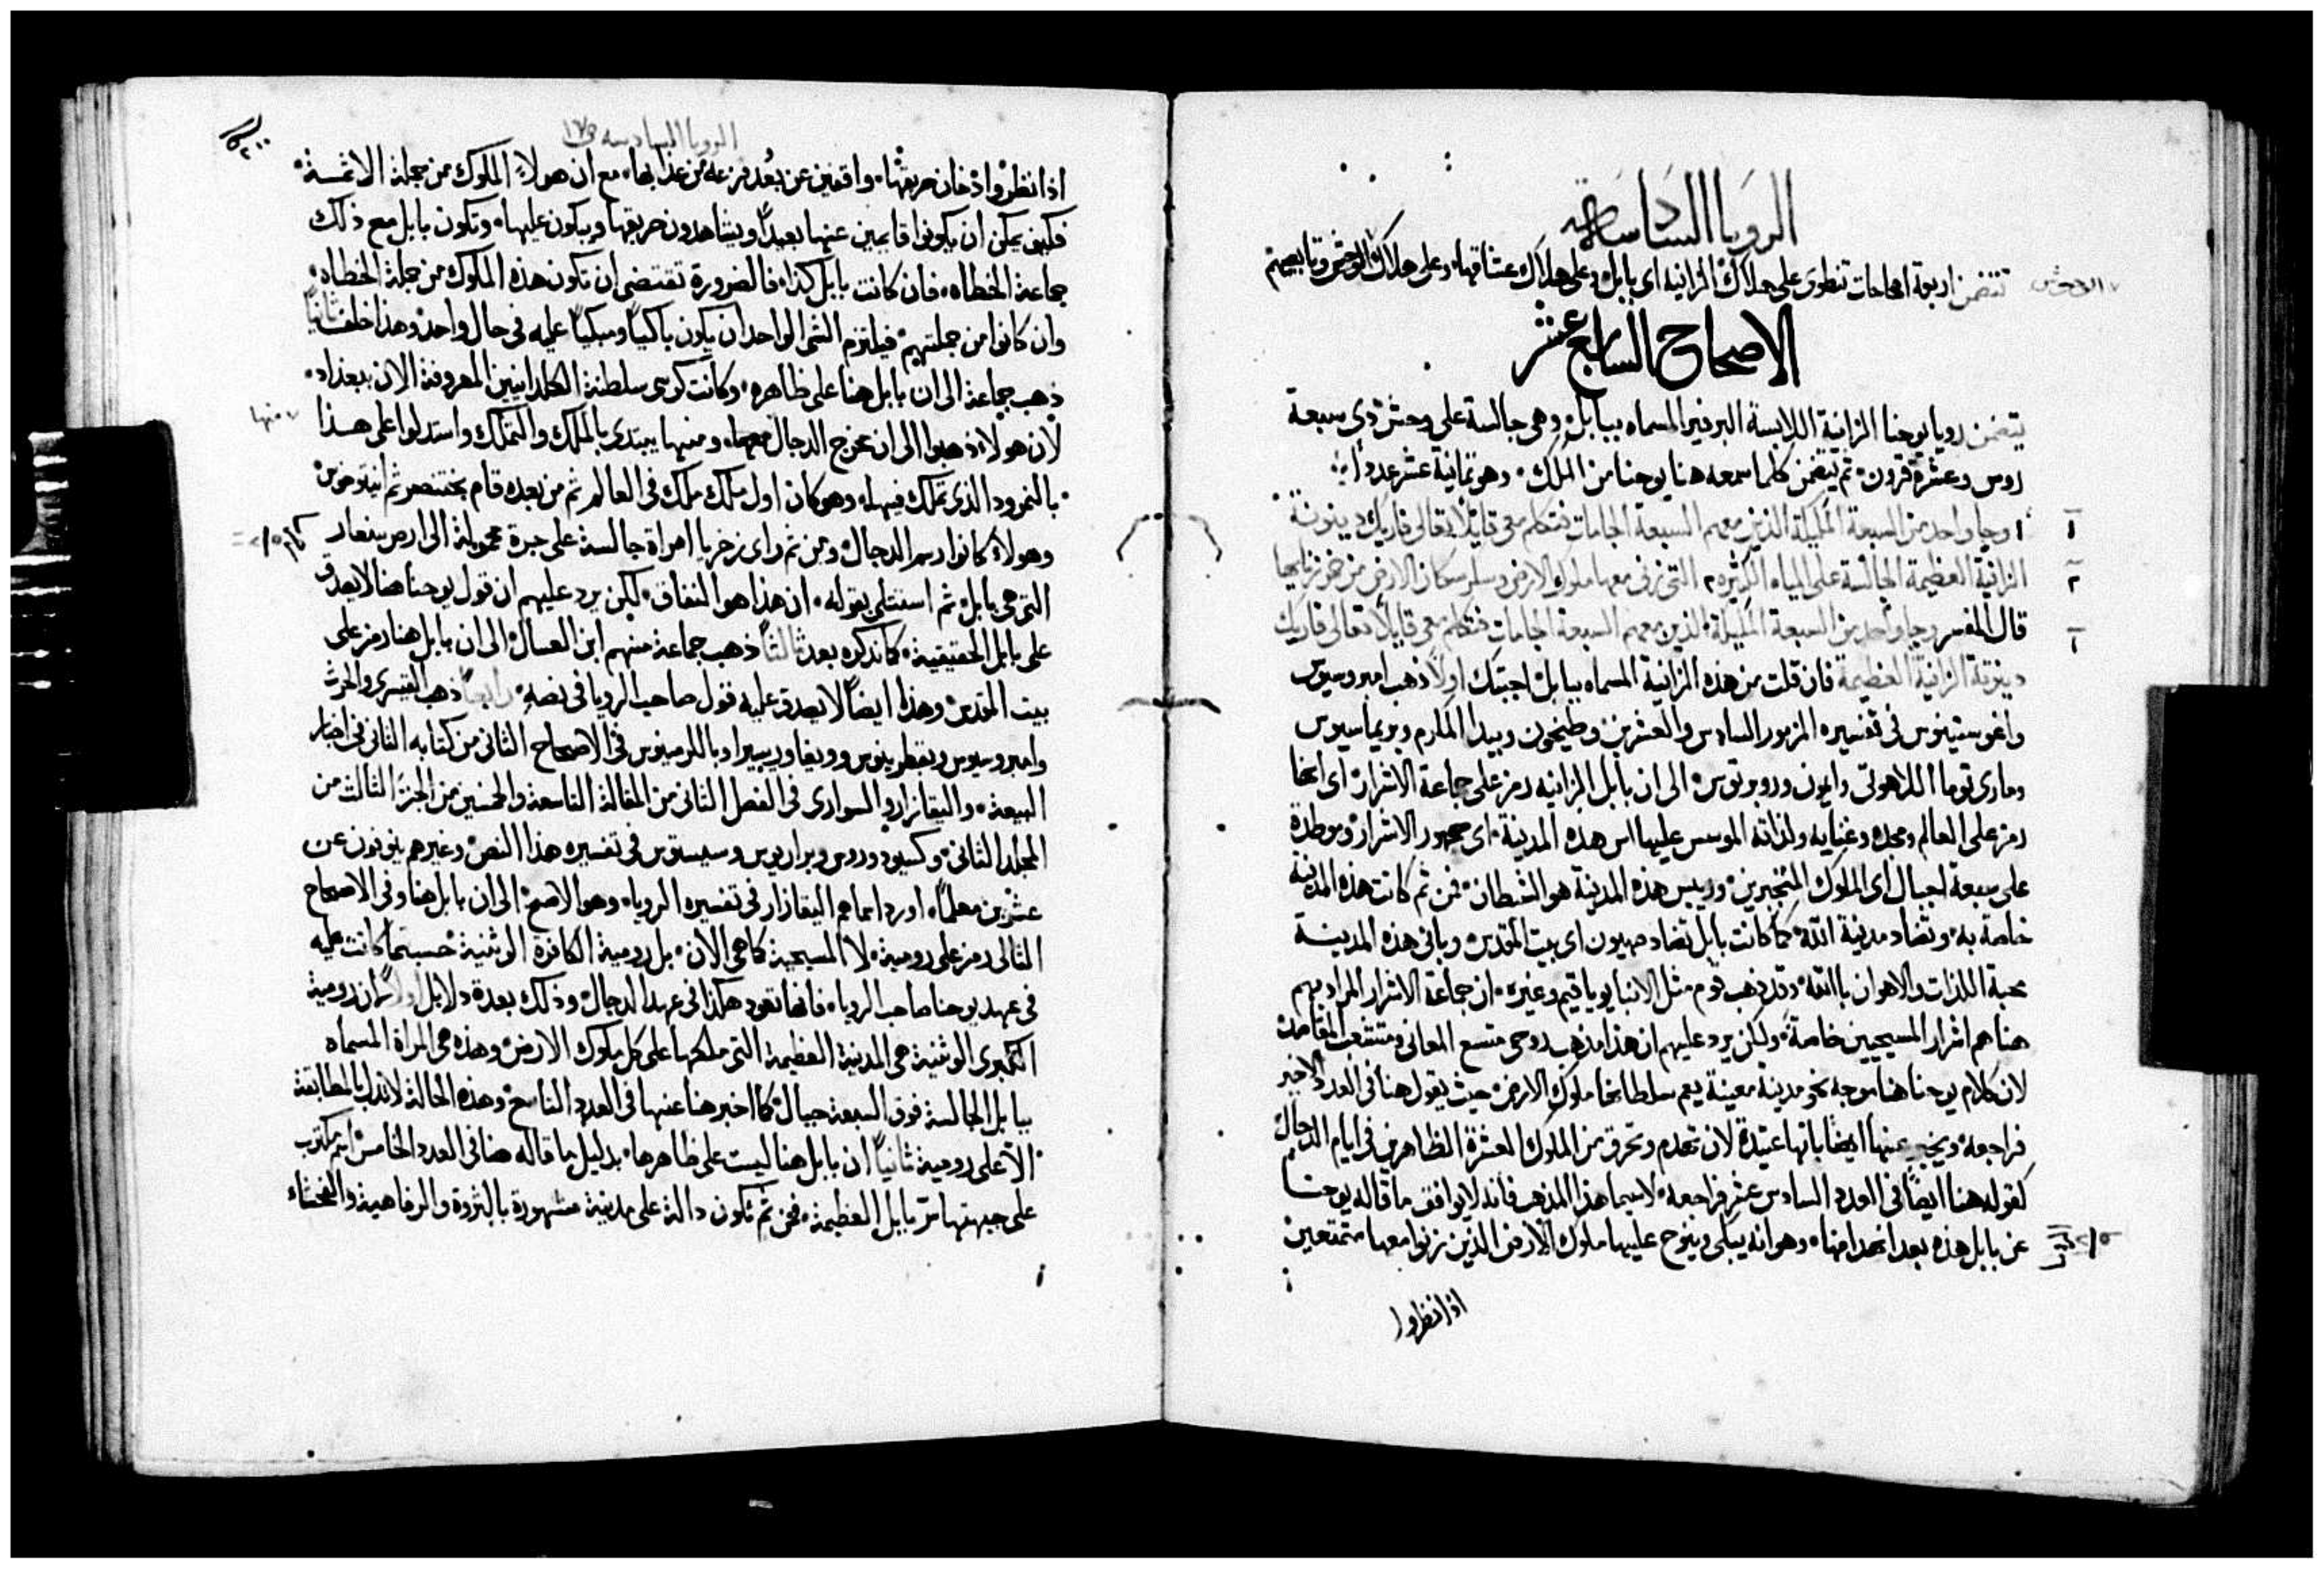 الرويا السادسة
تتضمن اربعة اصحاحات تنطوي على هلاك الزانيه اي بابل وعلى هلاك عشاقها وعلى هلاك الوحش وتابعيهم
الاصحاح السابع عشر
يتضمن رويا يوحنا الزانية اللابسة البرفير المسماه ببابل وهي جالسة على وحش ذي سبعة
روس وعشرة قرون ثم يتضمن كلما سمعه هنا يوحنا من الملك وهو ثمانية عشر عددا
١ وجا واحد من السبعة المليكة الذين معهم السبعة الجامات فتكلم معي قايلا تعالى فاريك دينونة
الزانية العظيمة الجالسة على المياه الكثيره ٢ التي زنى معها ملوك الارض وسكر سكان الارض من خمر زنايها
قال المفسر وجا واحد من السبعة المليكة الذين معهم السبعة الجامات فتكلم معي قايلا تعالى فاريك
دينونة الزانية العظيمة فان قلت من هذه الزانية المسماه ببابل اجبتك اولا ذهب امبروسيوس
واغوستينوس في تفسيره المزمور السادس والعشرين وطيخون وبيدا المكرم وبريماسيوس
وماري توما اللاهوتي وايمون وروبرتوس الى ان بابل الزانيه رمز على جماعة الاشرار اي انها
رمز على العالم ومجده وغنايه ولذاته الموسس عليها اس هذه المدينة اي جمهور الاشرار وموطدة
على سبعة اجبال اي الملوك المتجبرين ورييس هذه المدينة هو الشيطان فمن ثم كانت هذه المدينة
خاصة به وتضاد مدينة الله كما كانت بابل تضاد صهيون اي بيت المقدس وباني هذه المدينة
محبة اللذات والاهوان باالله وقد ذهب قوم مثل الانبا يوياقيم وغيره ان جماعة الاشرار المراد بهم
هنا هم اشرار المسيحيين خاصة ولكن يرد عليهم ان هذا مذهب روحي متسع المعاني ومتشعب المقاصد
لان كلام يوحنا هنا موجه نحو مدينة معينة يعم سلطانها ملوك الارض حيث يقول هنا في العدد الاخير
فراجعه ويخبر عنها ايضا بانها عتيدة لان تهدم وتحرق من الملوك العشرة الظاهرين في ايام الدجال
كقوله هنا ايضا في العدد السادس عشر فراجعه لاسيما هذا المذهب فانه لا يوافق ما قاله يوحنا
عن بابل هذه بعد انهدامها وهو انه يبكي وينوح عليها ملوك الارض الذين زنوا معها متمتعين
اذا نظروا
الرويا السادسه
اذا نظروا دخان حريقها واقفين عن بعد فزعه من عذابها مع ان هولاء الملوك من جملة الاثمة
فكيف يمكن ان يكونوا قايمين عنها بعيدا ويشاهدون حريقها ويبكون عليها وتكون بابل مع ذلك
جماعة الخطاه فان كانت بابل كذا فالضرورة تقتضي ان تكون هذه الملوك من جملة الخطاه
وان كانوا من جملتهم فيلتزم الشي الواحد ان يكون باكيا ومبكيا عليه في حال واحد وهذا خلف ثانيا
ذهب جماعة الى ان بابل هنا على ظاهره وكانت كرسي سلطنة الكلدانيين المعروفة الان ببغداد
لان هولاء ذهبوا الى ان يخرج الدجال ومنها يبتدي بالملك والتملك واستدلوا على هذا
منها
بالنمرود الذي تملك فيها وهو كان اول ملك ملك في العالم ثم من بعده قام بختنصر ثم انتيوخوس
وهولاء كانوا رسم الدجال ومن ثم راى زخريا امراة جالسة على جرة محمولة الى ارض سنعار
التي هي بابل ثم استتلى بقوله ان هذا هو النفاق لكن يرد عليهم ان قول يوحنا هنا لا يصدق
على بابل الحقيقية كما نذكره بعد ثالثا ذهب جماعة منهم ابن العسال الى ان بابل هنا رمز على
بيت المقدس وهذا ايضا لا يصدق عليه قول صاحب الرويا في نصه رابعا ذهب القيسري والحرث
وامبروسيوس وبقطرينوس وويغا وريبيرا وبالرمينوس في الاصحاح الثاني من كتابه الثاني في احبار
البيعة والبقازار والسواري في الفصل الثاني من المقالة التاسعة والخمسين من الجزء الثالث من
المجلد الثاني وكسيودوروس وبراريوس وسيستوس في تفسيره هذا النص وغيرهم ينوفون عن
عشرين معلما اورد اسماهم البقازار في تفسيره الرويا وهو الاصح الى ان بابل هنا وفي الاصحاح
التالي رمز على رومية لا المسيحية كما هي الان بل رومية الكافرة الوثنية حسبما كانت عليه
في عهد يوحنا صاحب الرويا فانها تعود هكذا في عهد الدجال وذلك بعدة دلايل اولا ان رومية
الكبرى الوثنية هي المدينة العظيمة التي ملكها على كل ملوك الارض وهذه هي المراة المسماه
ببابل الجالسة فوق السبعة جبال كما اخبر هنا عنها في العدد التاسع وهذه الحالة لا تدل بالمطابقة
الا على رومية ثانيا ان بابل هنا ليست على ظاهرها بدليل ما قاله هنا في العدد الخامس اسم مكتوب
على جبهتها سر بابل العظيمة فمن ثم تكون دالة على مدينة مشهورة بالثروة والرفاهية والفحشاء